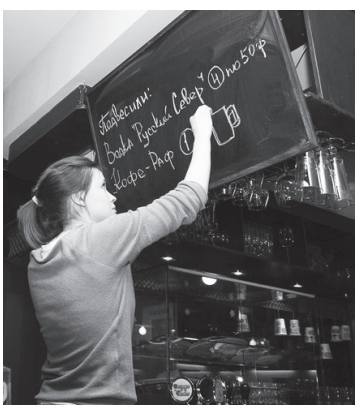 Подвесили:
Водка "Русский Север" ④ по 50 ф
Кофе-Раф ①